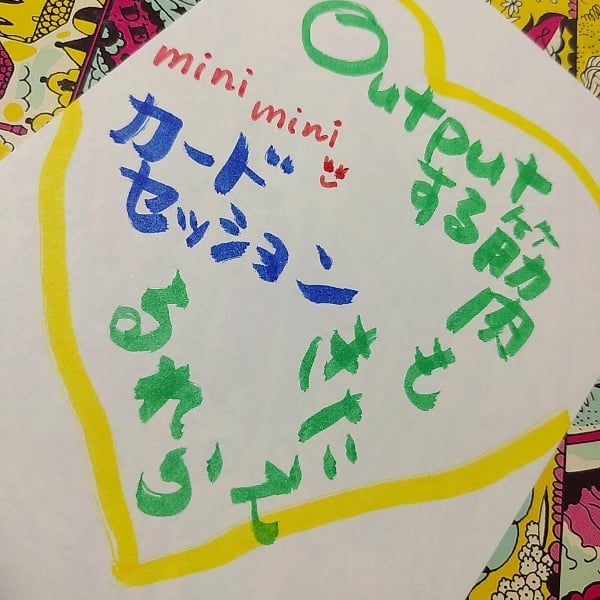 mini mini
カード
セッション
Output
する筋肉
も
きたえ
られる